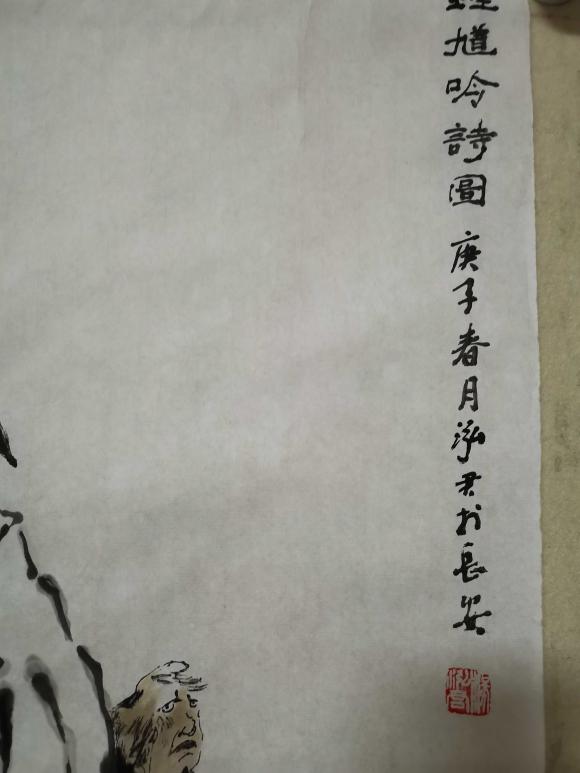 鍾馗吟詩圖 庚子春月泓君於長安